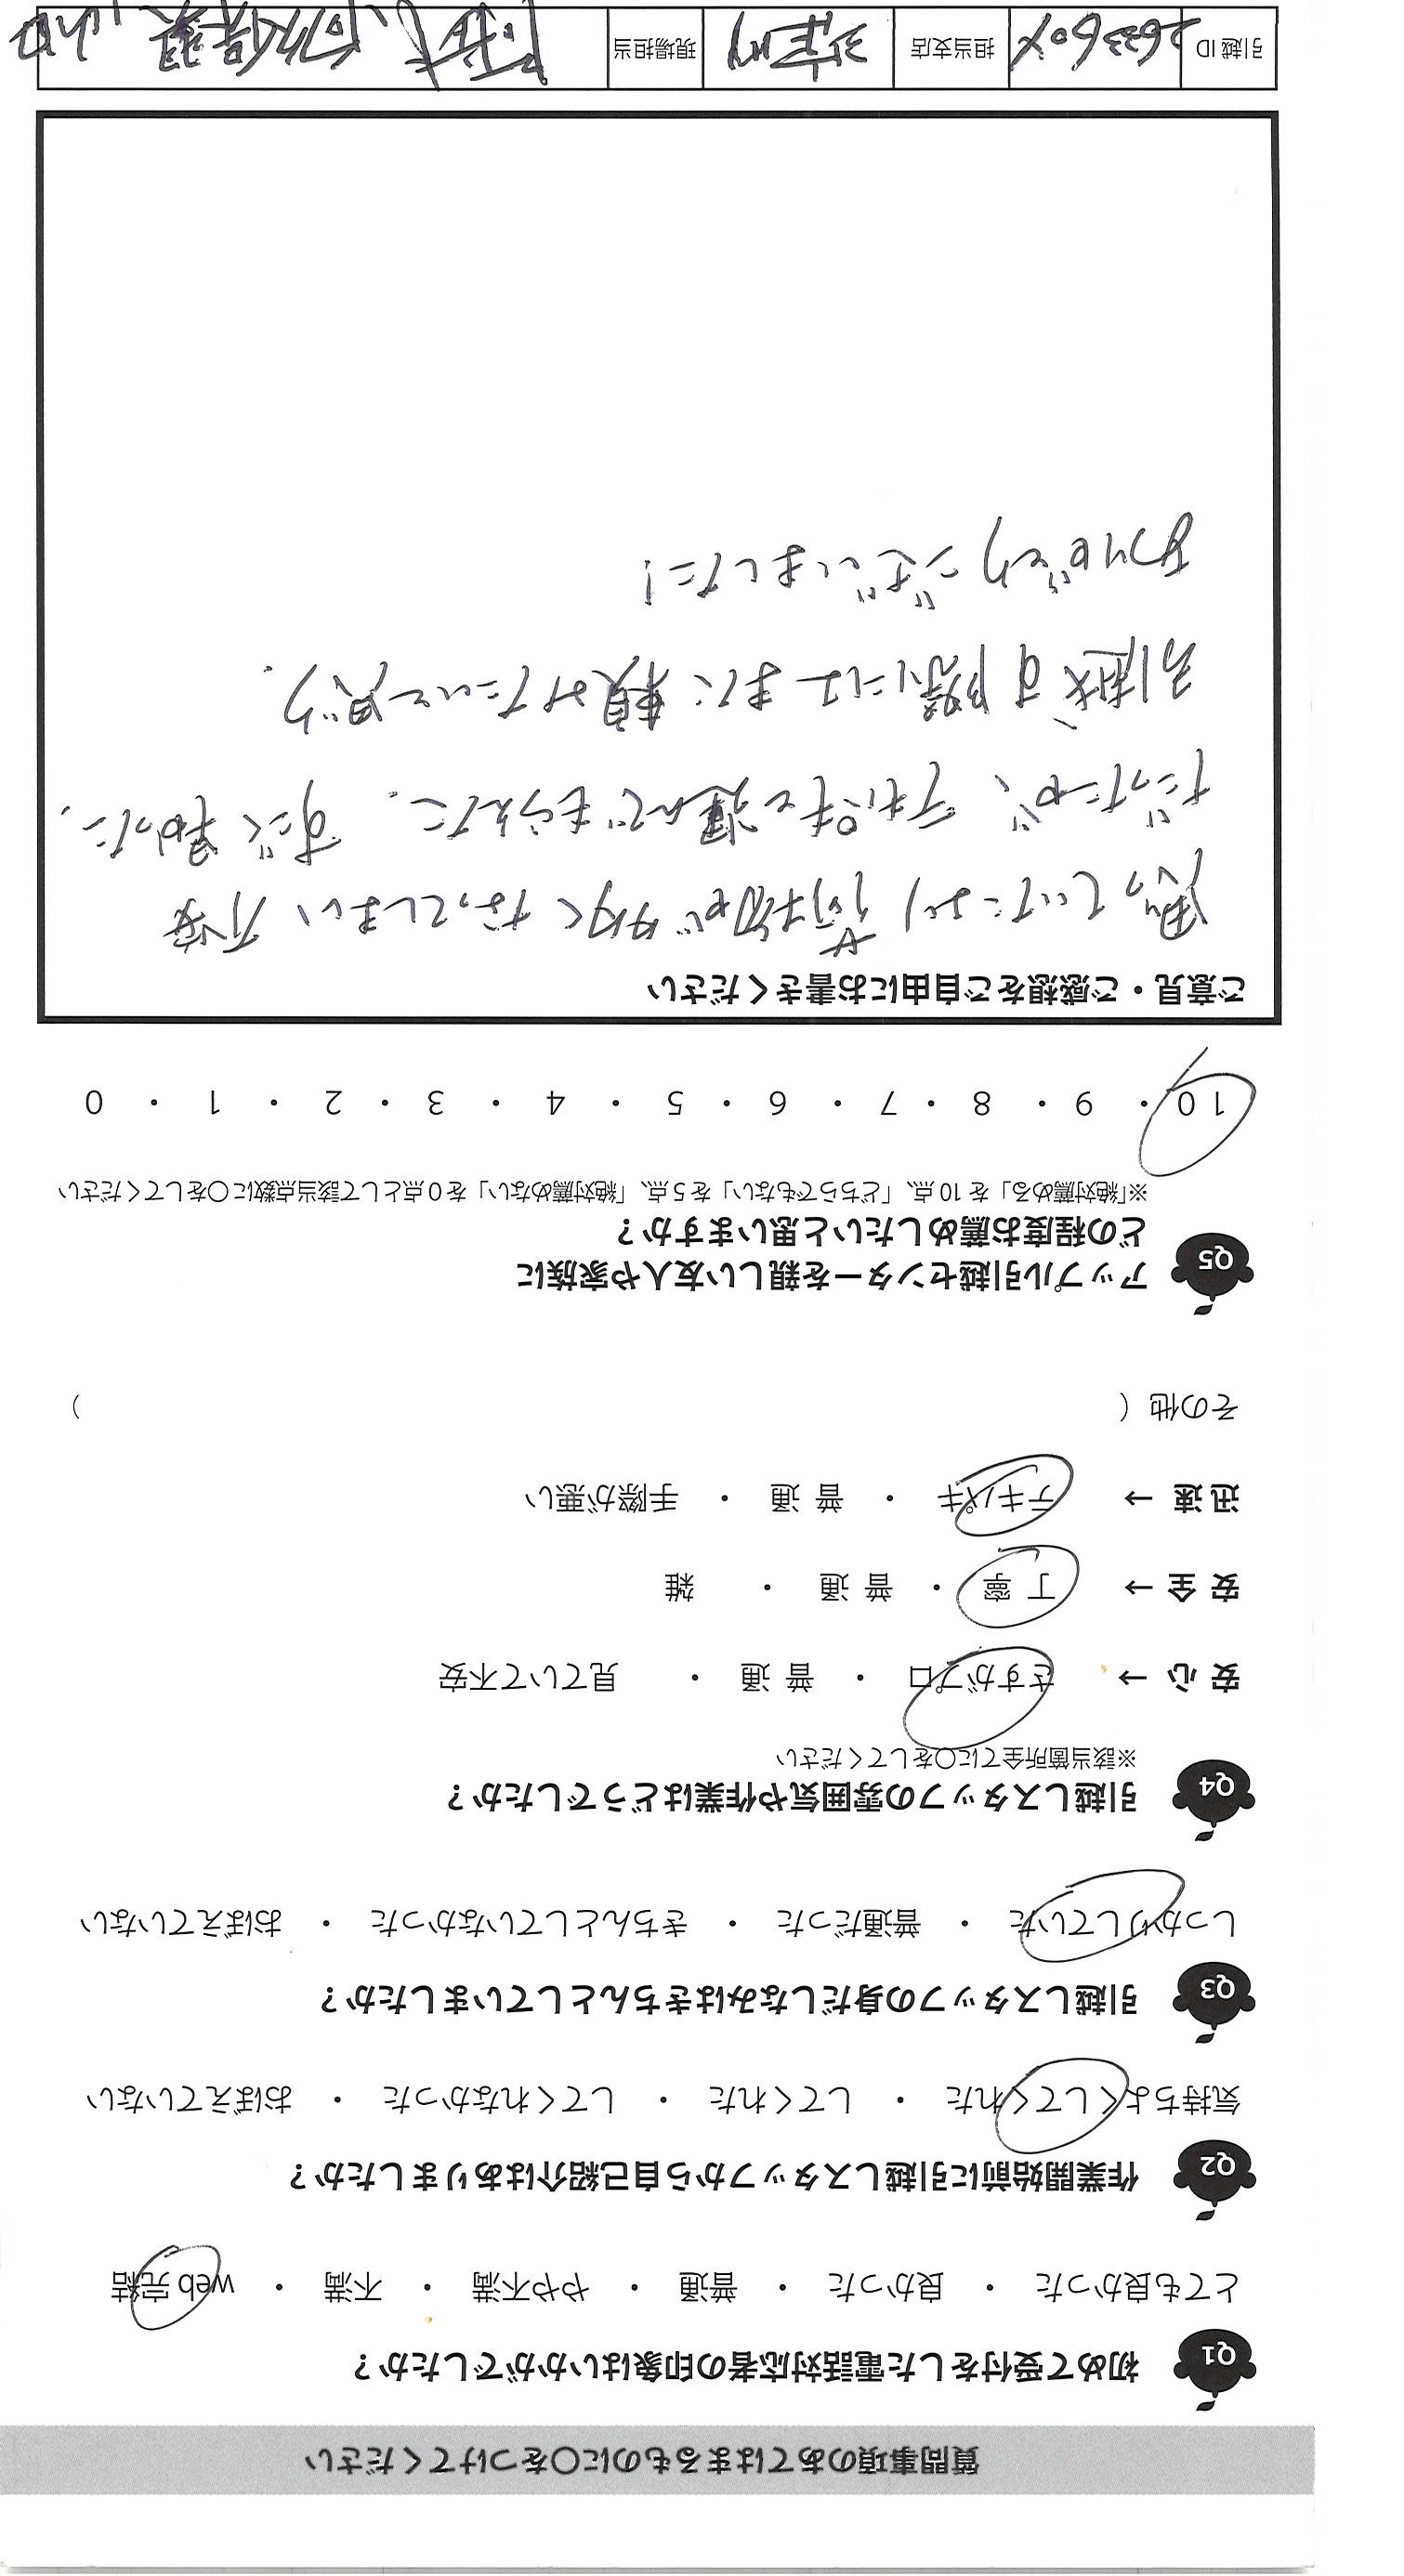 質問事項のあてはまるものに〇をつけてください
Q1 初めて受付をした電話対応者の印象はいかがでしたか？
とても良かった ・ 良かった ・ 普通 ・ やや不満 ・ 不満 ・ web 完結
Q2 作業開始前に引越しスタッフから自己紹介はありましたか？
気持ちよくしてくれた ・ してくれた ・ してくれなかった ・ おぼえていない
Q3 引越しスタッフの身だしなみはきちんとしていましたか？
しっかりしていた ・ 普通だった ・ きちんとしていなかった ・ おぼえていない
Q4 引越しスタッフの雰囲気や作業はどうでしたか？
※該当箇所全てに〇をしてください
安 心 → さすがプロ ・ 普 通 ・ 見ていて不安
安 全 → 丁 寧 ・ 普 通 ・ 雑
迅 速 → テキパキ ・ 普 通 ・ 手際が悪い
その他（ ）
Q5 アップル引越センターを親しい友人や家族に
どの程度お薦めしたいと思いますか？
※「絶対薦める」を 10 点、「どちらでもない」を 5 点、「絶対薦めない」を 0 点として該当点数に〇をしてください
10 ・ 9 ・ 8 ・ 7 ・ 6 ・ 5 ・ 4 ・ 3 ・ 2 ・ 1 ・ 0
ご意見・ご感想をご自由にお書きください
思っていたより荷物が多くなってしまい不安
だったが、テキパキと運んでもらえた。すごく早かった。
引越す際にはまた頼みたいと思う。
ありがとうございました！
引越 ID 担当支店 現場担当